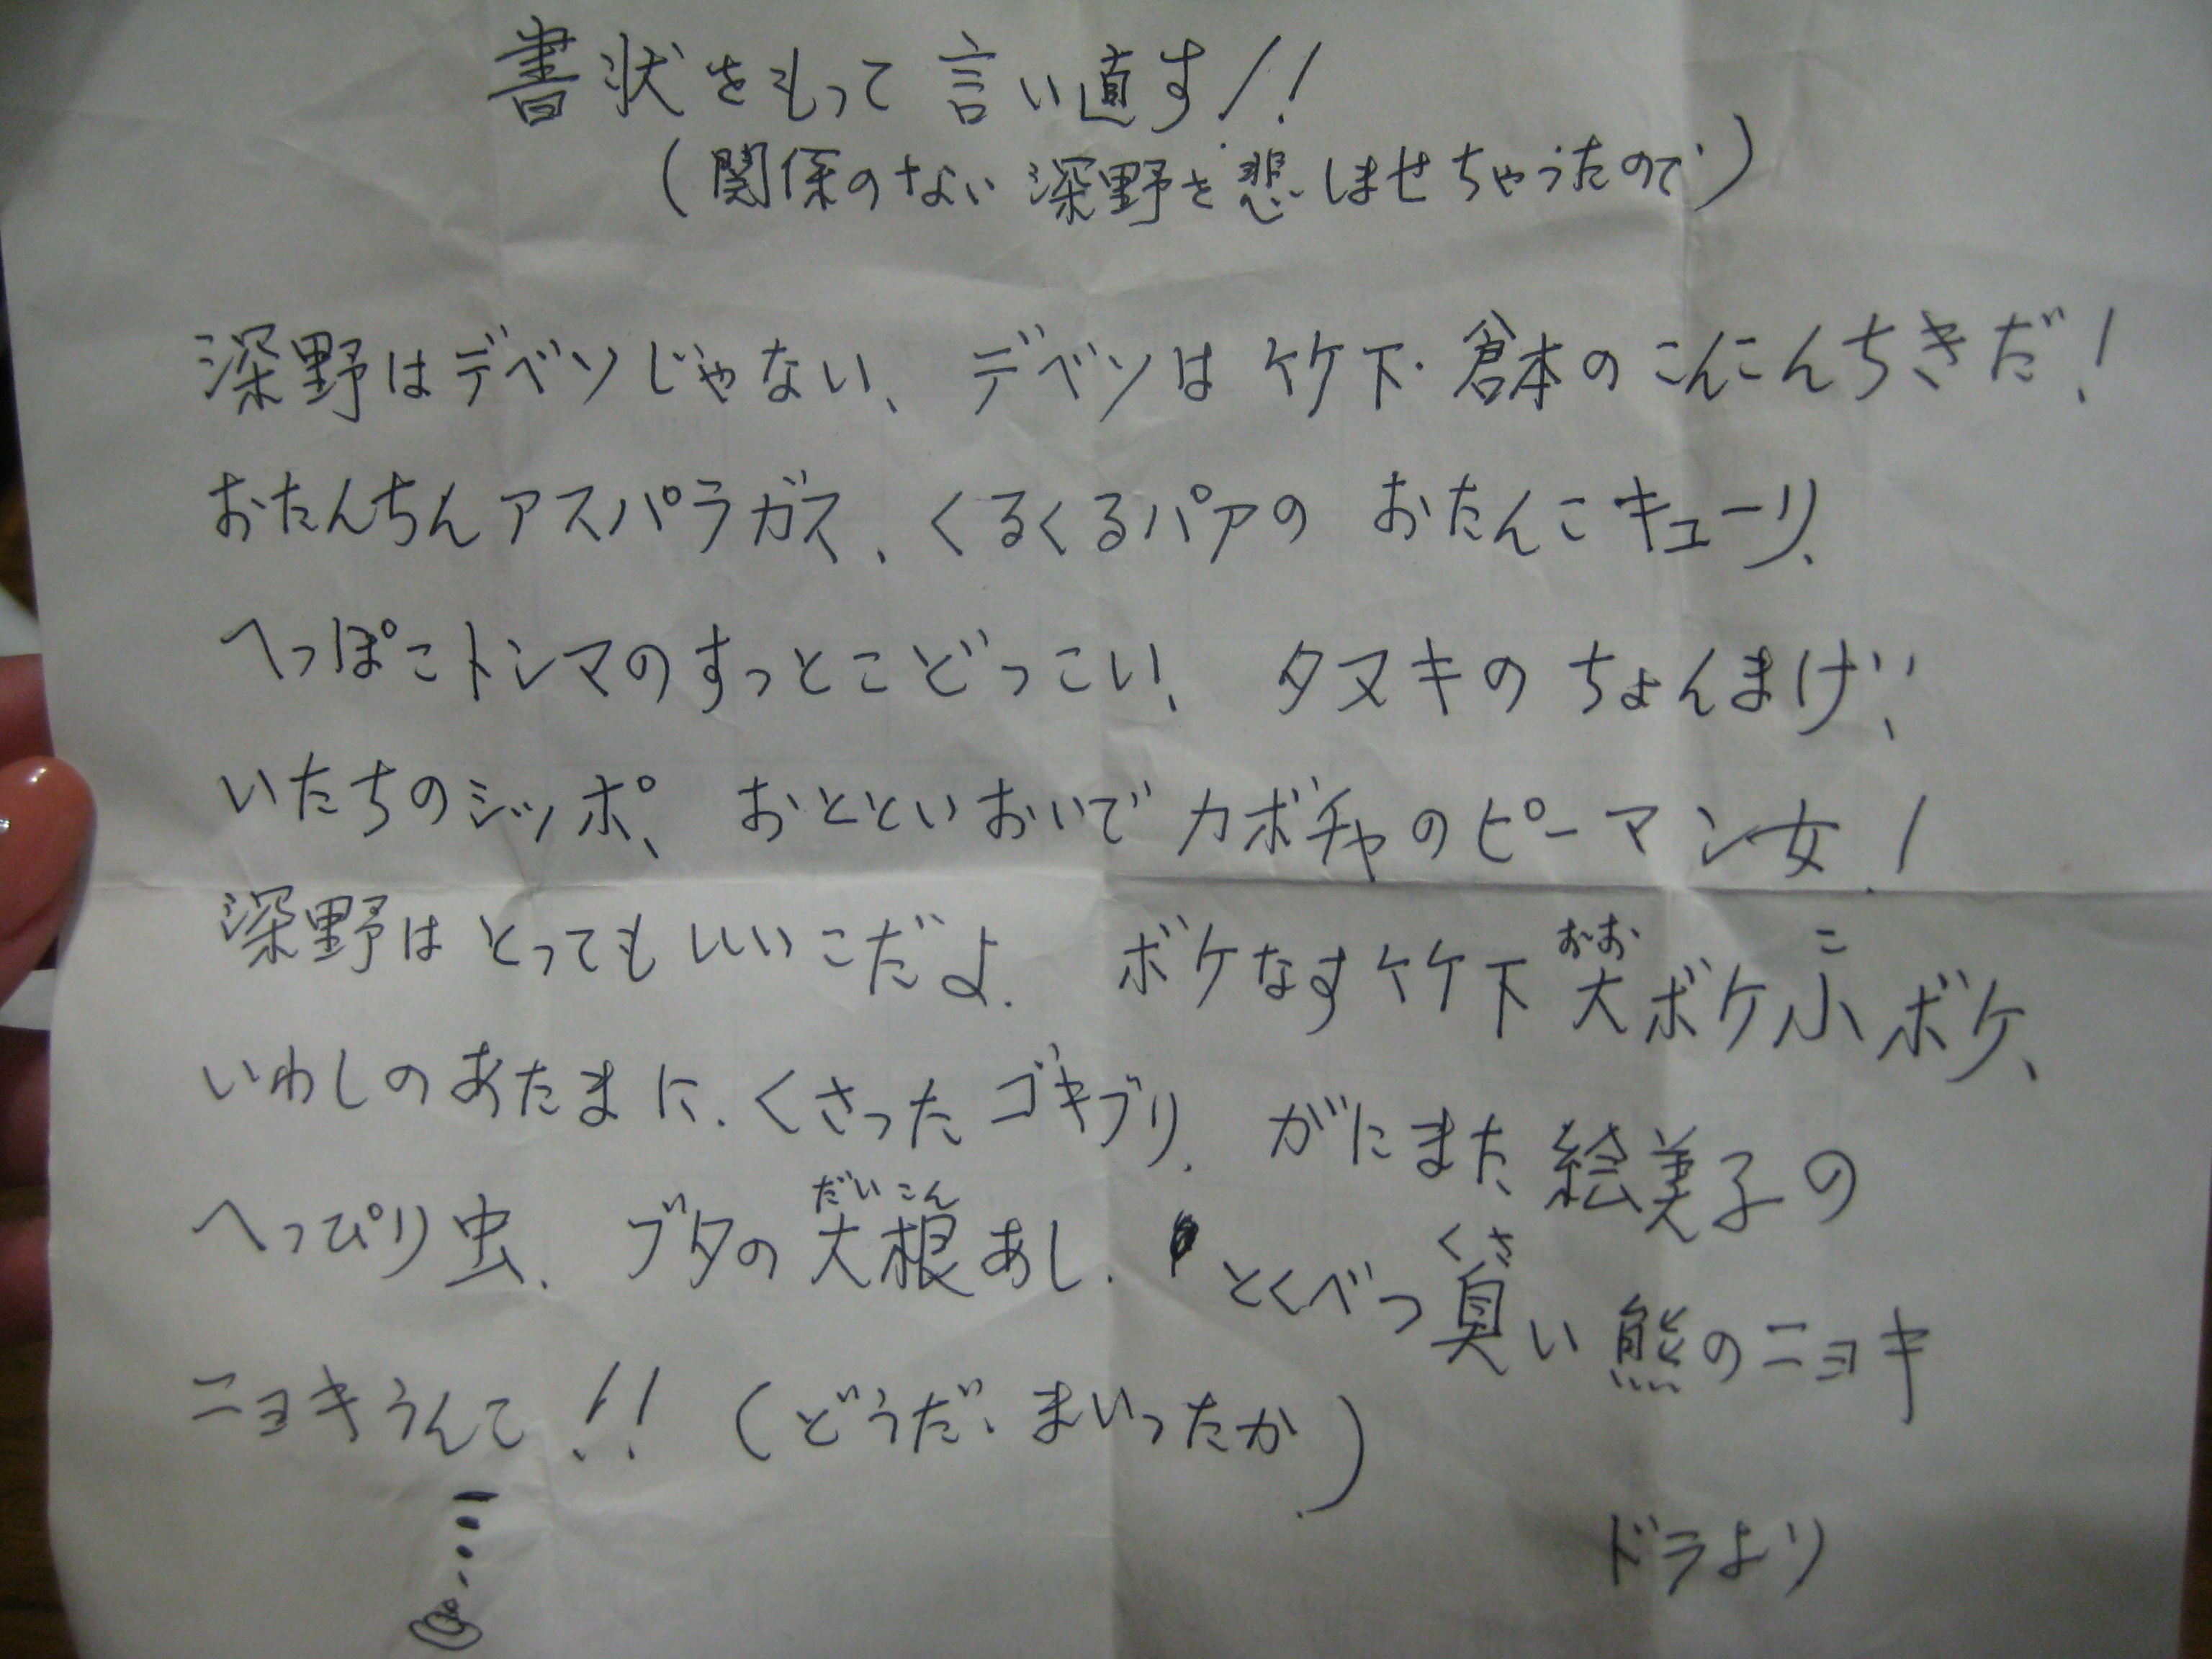 書状をもって言い直す!!
(関係のない深野を悲しませちゃうたので)
深野はデベソじゃない、デベソは竹下・倉本のこんこんちきだ!
おたんちんアスパラガス、くるくるパアの おたんこキューリ、
へっぽこトンマのすっとこどっこい、 タヌキの ちょんまげ、
いたちのシッポ、 おとといおいで カボチャのピーマン女!
深野は とっても いいこだよ. ボケなす竹下 大ボケ小ボケ、
おお こ
いわしのあたまに、くさったゴキブリ. がにまた絵美子の
へっぴり虫. ブタの大根あし. とくべつ臭い熊のニョキ
だいこん くさ
ニョキうんて!! (どうだ、まいったか)
ドラより